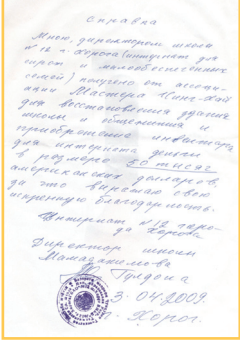 справка
Мною, директором школы
№12 г. Хорога (интернат для
сирот и малообеспеченных
семей) получено от ассоци-
ации Мастера Чинг Хай
для восстановления здания
школы и общежития и
приобретения инвентаря
для интерната деньги
в размере 50 тысяч
американских долларов,
за что выражаю свою
искреннюю благодарность.
Интернат №12 горо-
да Хорога
Директор школы
Гулдона
3.04.2009.
г. Хорог.